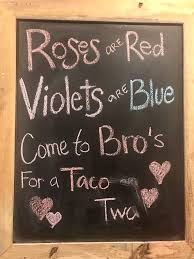 Roses are Red
Violets are Blue
Come to Bro's
For a Taco or
Twa